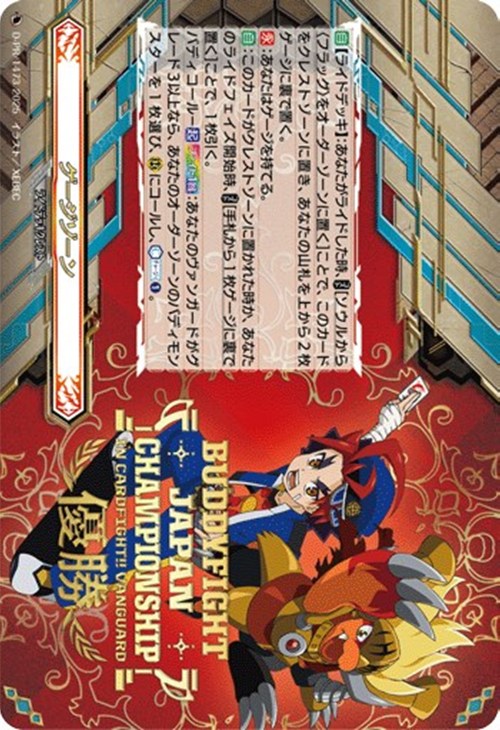 自【ライドデッキ】:あなたがライドした時、【ソウルから
(フラッグ)をオーダーゾーンに置く】ことで、このカード
をクレストゾーンに置き、あなたの山札を上から2枚
ゲージに裏で置く。
永:あなたはゲージを持てる。
自:このカードがクレストゾーンに置かれた時か、あなた
のライドフェイズ開始時、【手札から1枚ゲージに裏で
置く】ことで、1枚引く。
バディコール-起 :あなたのヴァンガードがグ
レード3以上なら、あなたのオーダーゾーンのバディモン
スターを1枚選び、 にコールし、 。
ゲージゾーン
ライドデッキクレスト
D-PR/1473 2025 イラスト/XEBEC
BUDDYFIGHT
JAPAN
CHAMPIONSHIP
IN CARDFIGHT!! VANGUARD
優勝